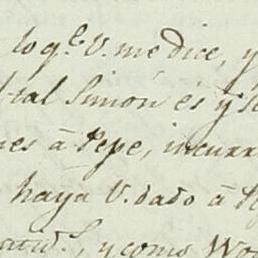 lo q.e V. me dice, y
tal Simon es y
nes à Pepe, incurr
haya V. dado à
y como